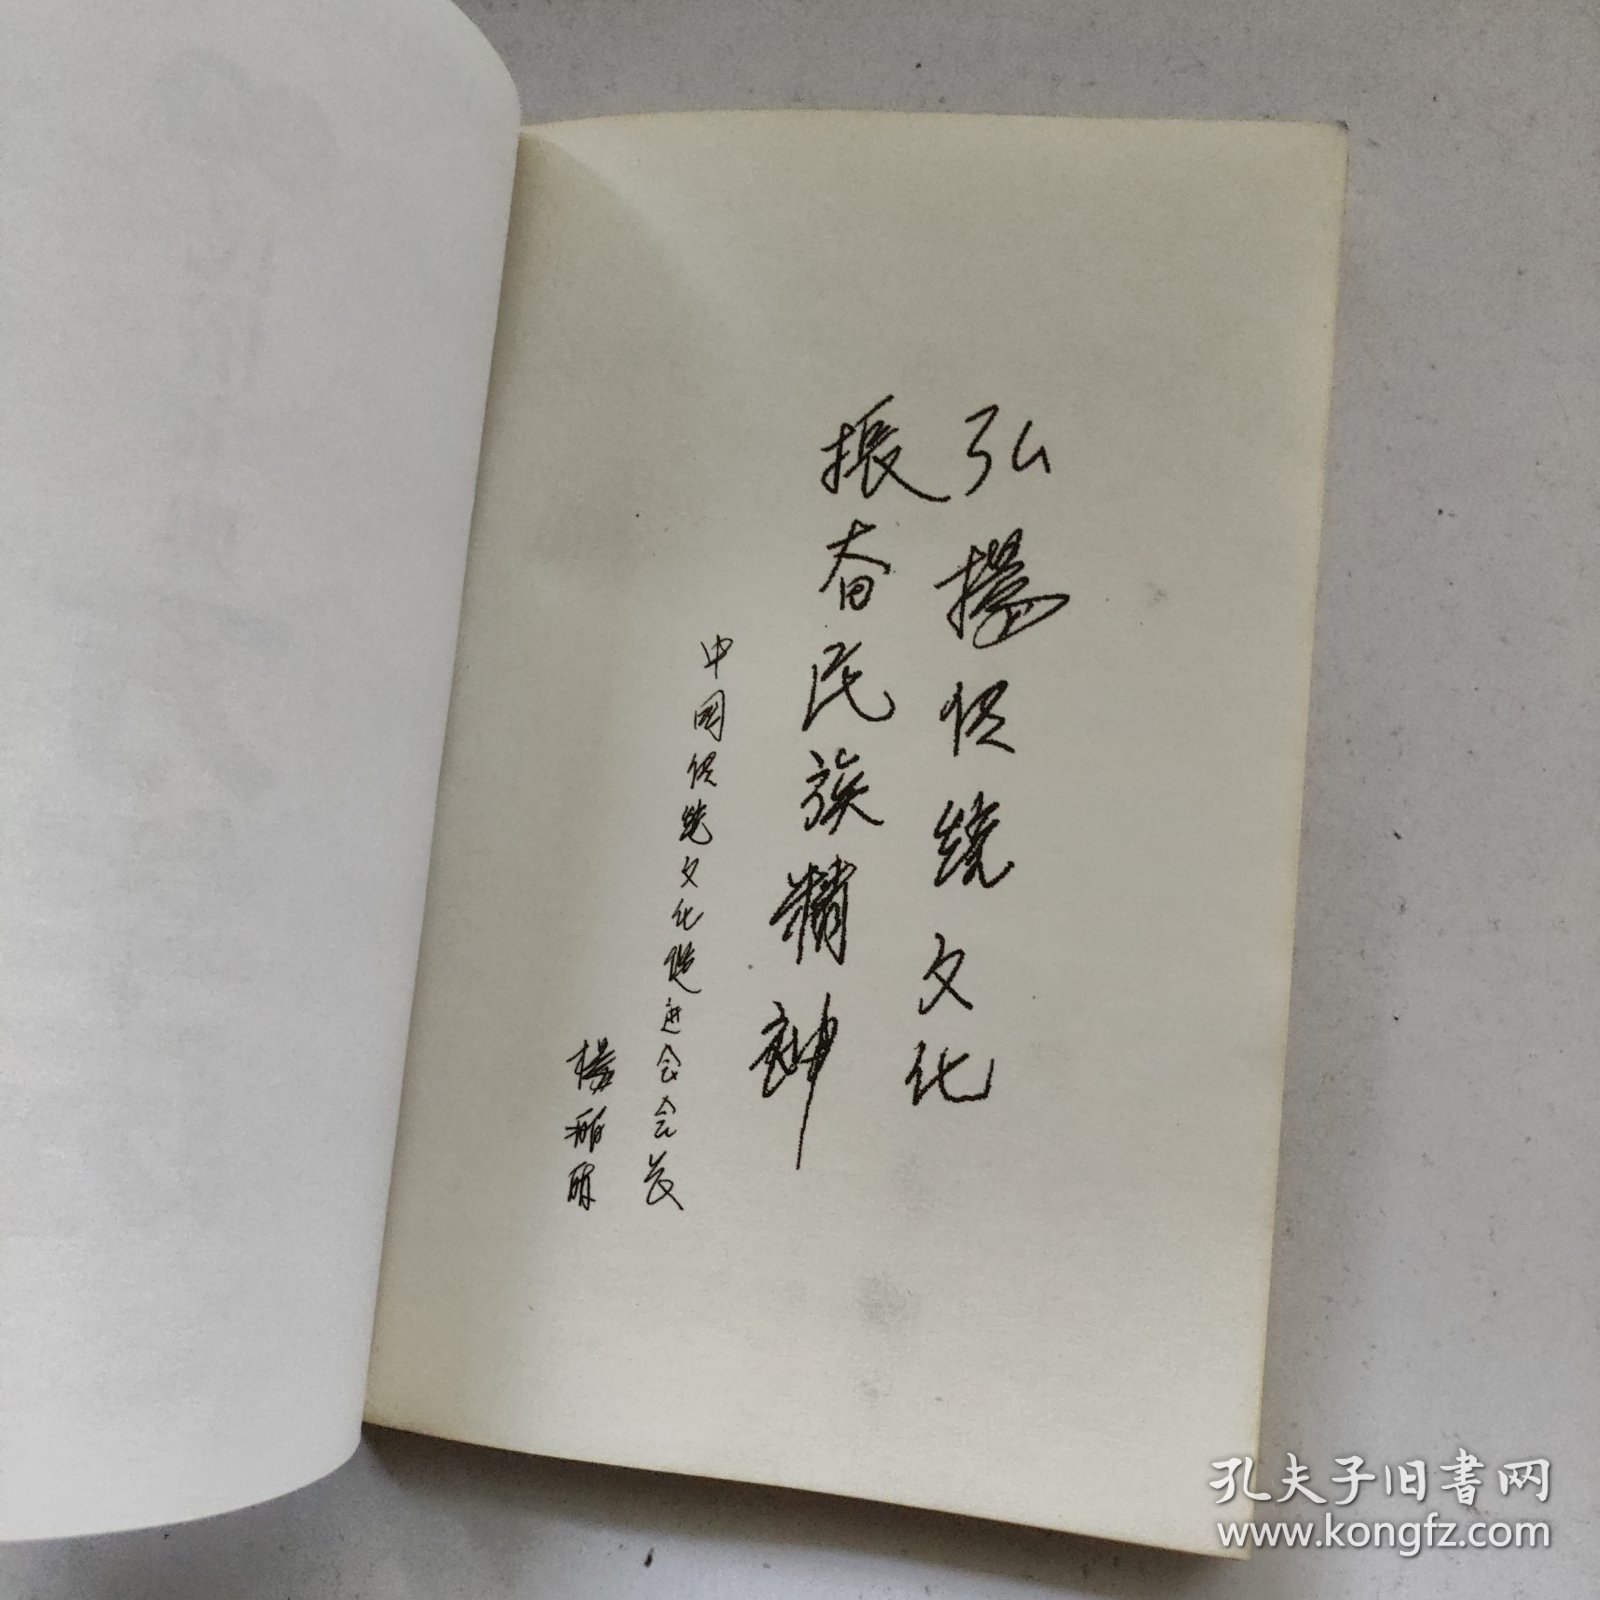 弘扬传统文化
振奋民族精神
中国传统文化促进会会长
杨
孔夫子旧书网
www.kongfz.com